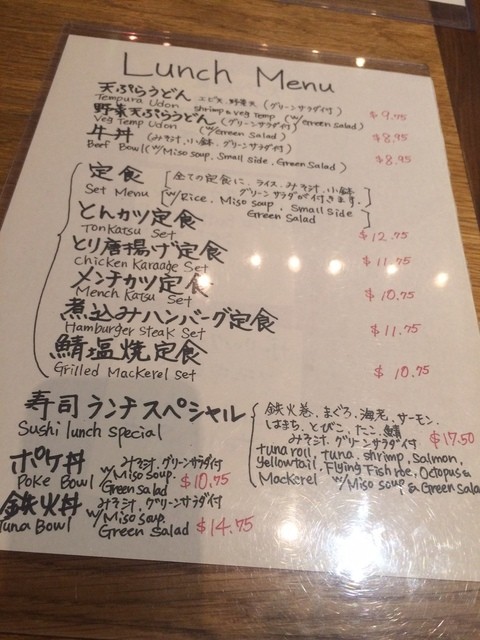 Lunch Menu
天ぷらうどん エビ天、野菜天 (グリーンサラダ付)
Tempura Udon shrimp & veg Temp (w/Green Salad) $9.75
野菜天ぷらうどん (グリーンサラダ付)
Veg Temp Udon (w/Green Salad) $8.95
牛丼 (みそ汁、小鉢、グリーンサラダ付)
Beef Bowl (w/Miso soup, Small side, Green Salad) $8.95
定食 [全ての定食に、ライス、みそ汁、小鉢
グリーンサラダが付きます。]
Set Menu [w/Rice, Miso soup, Small side
Green Salad]
とんカツ定食
Tonkatsu Set $12.75
とり唐揚げ定食
Chicken Karaage Set $11.75
メンチカツ定食
Mench Katsu Set $10.75
煮込みハンバーグ定食
Hamburger Steak Set $11.75
鯖塩焼定食
Grilled Mackerel Set $10.75
寿司ランチスペシャル
Sushi lunch special
鉄火巻、まぐろ、海老、サーモン、
はまち、とびこ、たこ、鯖
みそ汁、グリーンサラダ付 $17.50
tuna roll, tuna, shrimp, Salmon,
yellowtail, Flying Fish roe, Octopus &
Mackerel w/Miso soup & Green Salad
ポケ丼 みそ汁、グリーンサラダ付
Poke Bowl w/Miso soup.
Green Salad $10.75
鉄火丼 みそ汁、グリーンサラダ付
Tuna Bowl w/Miso soup.
Green Salad $14.75